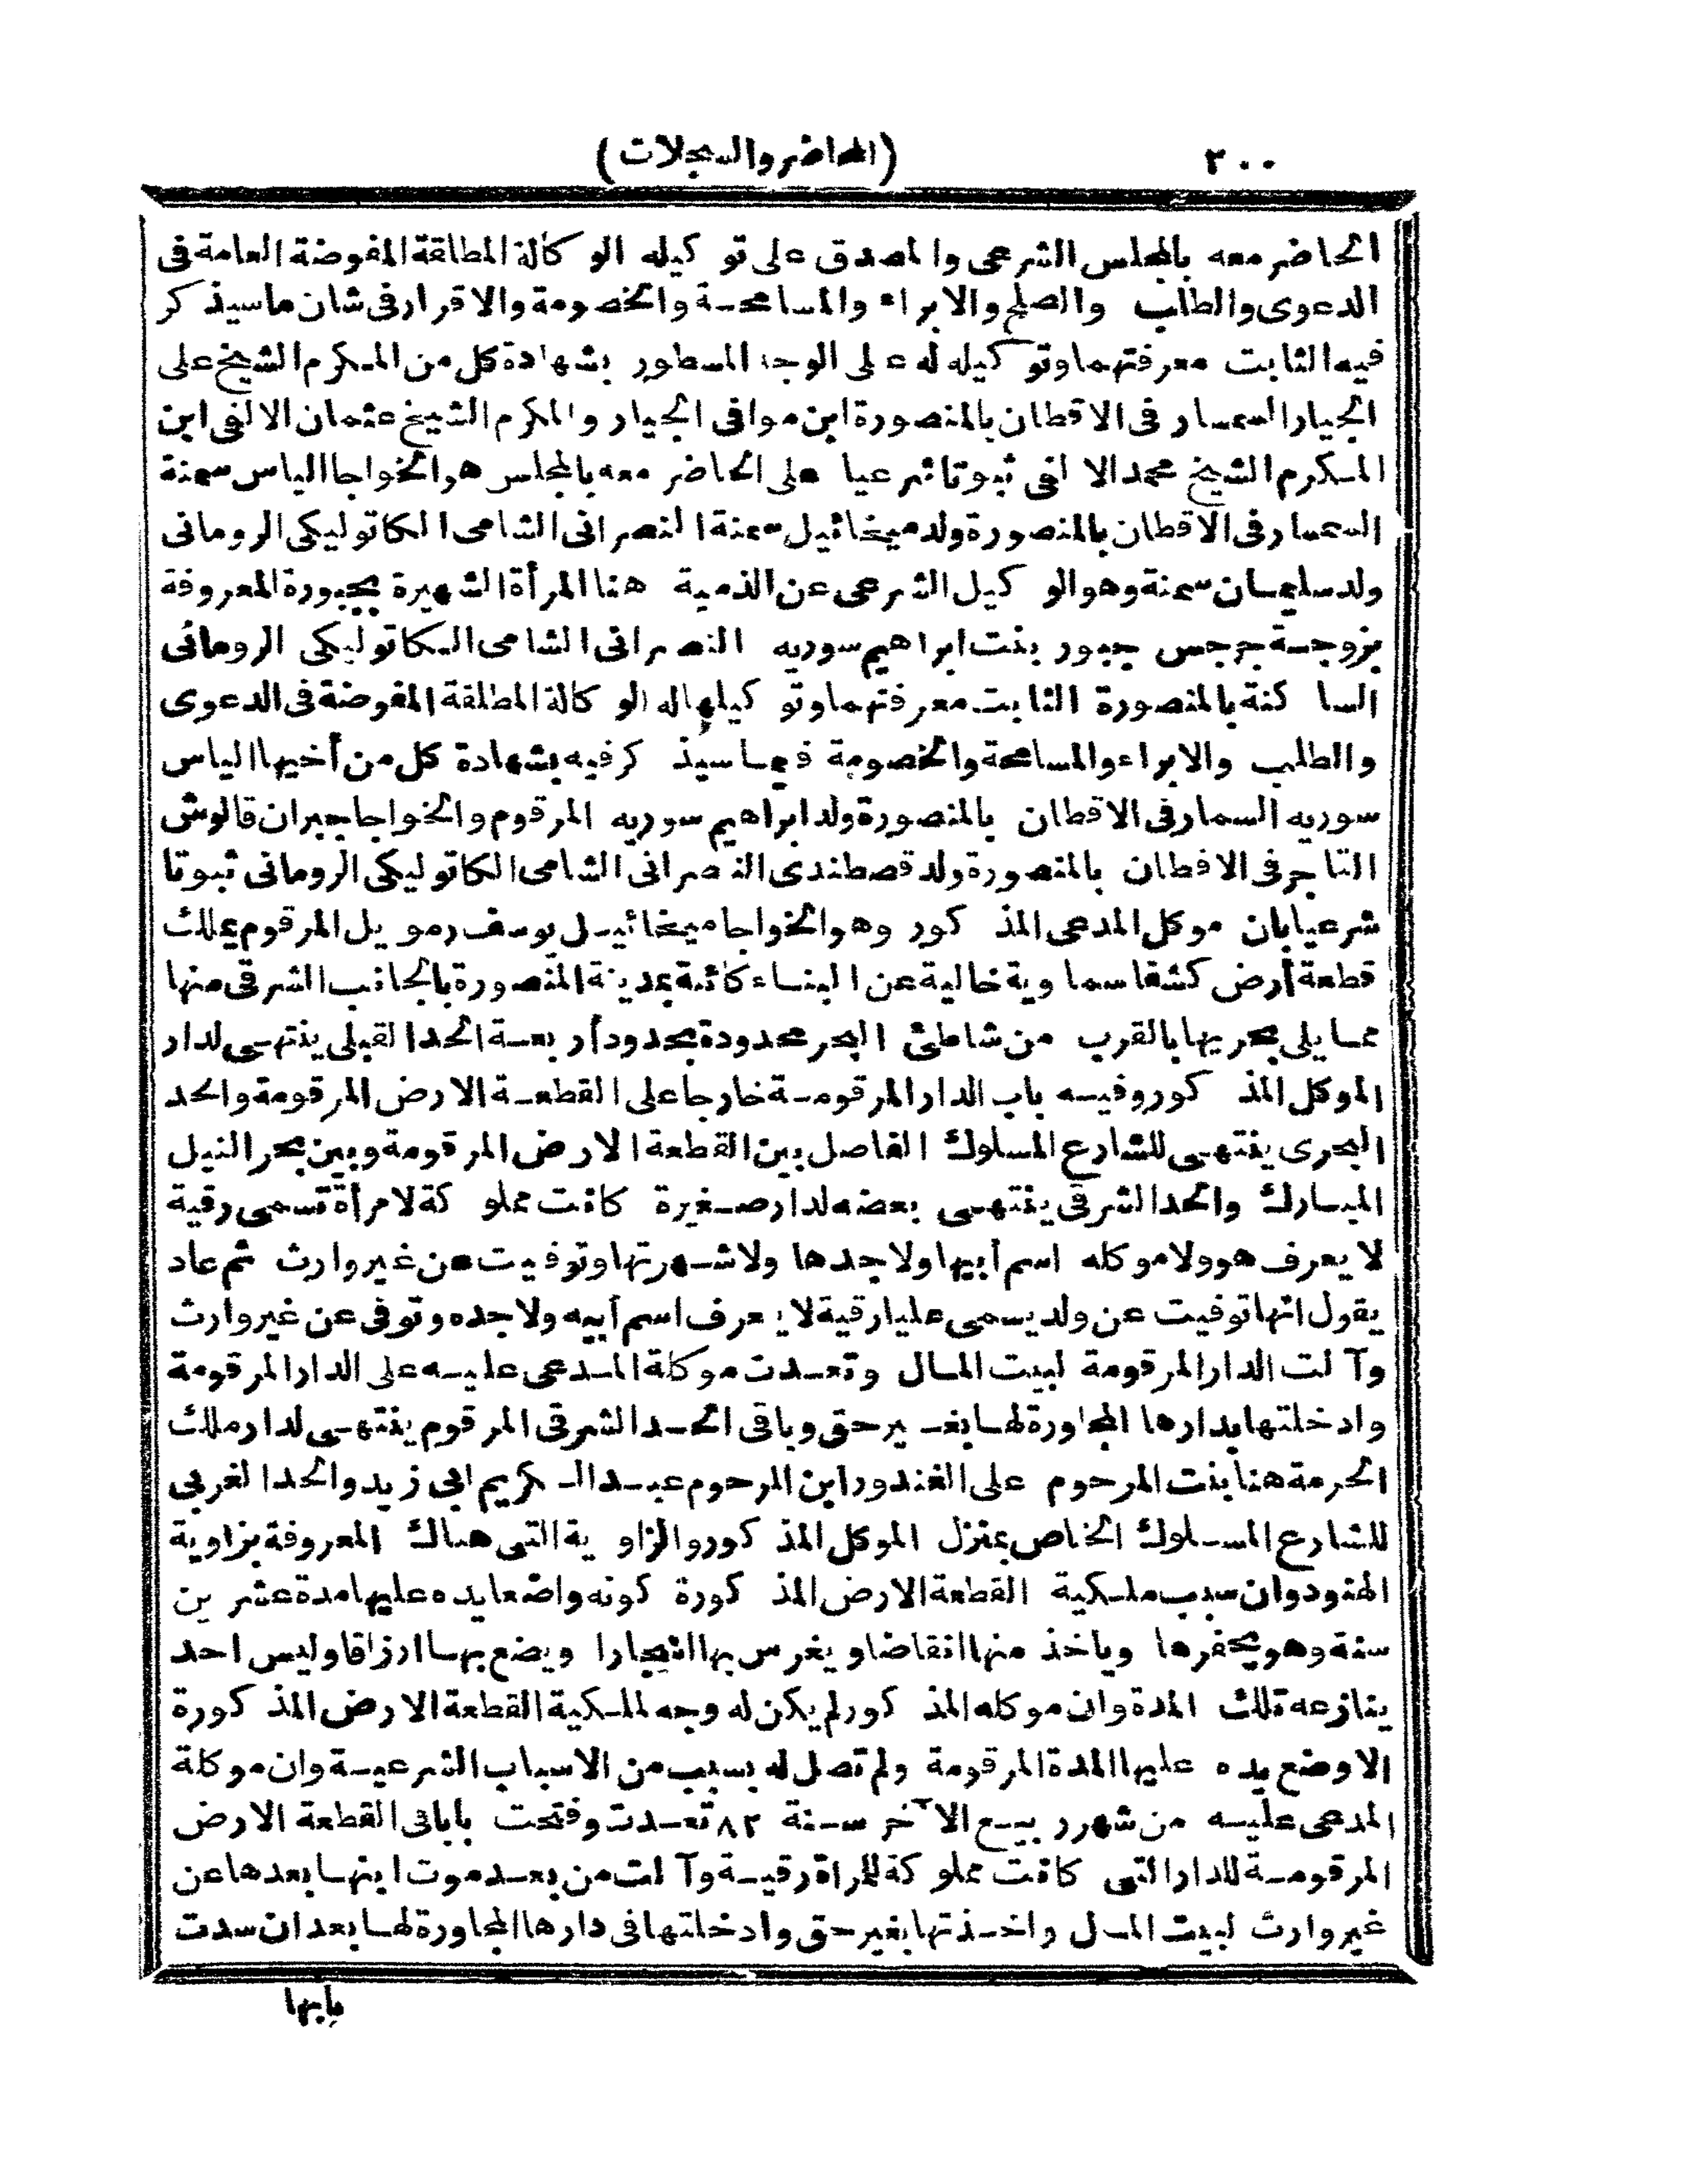 ٢٠٠
(المحاضر والسجلات)
الحاضر معه بالمجلس الشرعى والمصدق على توكيله الوكالة المطلقة المفوضة العامة فى
الدعوى والطلب والصلح والابراء والمسامحة والخصومة والاقرار فى شان ماسيذكر
فيه الثابت معرفتهما وتوكيله له على الوجه المسطور بشهادة كل من المكرم الشيخ على
الجيار السمسار فى الاقطان بالمنصورة ابن موافى الجيار والمكرم الشيخ عثمان الالفى ابن
المكرم الشيخ محمد الالفى ثبوتا شرعيا على الحاضر معه بالمجلس هو الخواجا الياس سمنة
السمسار فى الاقطان بالمنصورة ولد ميخائيل سمنة النصرانى الشامى الكاتوليكى الرومانى
ولد سليمان سمنة وهو الوكيل الشرعى عن الذمية هنا المرأة الشهيرة بجبورة المعروفة
بزوجة جرجس جبور بنت ابراهيم سوريه النصرانى الشامى الكاتوليكى الرومانى
الساكنة بالمنصورة الثابت معرفتهما وتوكيلها له الوكالة المطلقة المفوضة فى الدعوى
والطلب والابراء والمسامحة والخصومة فيما سيذكر فيه بشهادة كل من أخيها الياس
سوريه السمار فى الاقطان بالمنصورة ولد ابراهيم سوريه المرقوم والخواجا جبران قالوش
التاجر فى الاقطان بالمنصورة ولد قصطندى النصرانى الشامى الكاتوليكى الرومانى ثبوتا
شرعيا بان موكل المدعى المذكور وهو الخواجا ميخائيل يوسف رمويل المرقوم يملك
قطعة أرض كشفا سماوية خالية عن البناء كائنة بمدينة المنصورة بالجانب الشرقى منها
مما يلى بحريها بالقرب من شاطئ البحر محدودة بحدود أربعة الحد القبلى ينتهى لدار
الموكل المذكور وفيه باب الدار المرقومة خارجا على القطعة الارض المرقومة والحد
البحرى ينتهى للشارع المسلوك الفاصل بين القطعة الارض المرقومة وبين بحر النيل
المبارك والحد الشرقى ينتهى بعضه لدار صغيرة كانت مملوكة لامرأة تسمى رقية
لا يعرف هو ولا موكله اسم أبيها ولا جدها ولا شهرتها وتوفيت عن غير وارث ثم عاد
يقول انها توفيت عن ولد يسمى عليا رقية لا يعرف اسم أبيه ولا جده وتوفى عن غير وارث
وآلت الدار المرقومة لبيت المال وتعدت موكلة المدعى عليه على الدار المرقومة
وادخلتها بدارها المجاورة لها بغير حق وباقى الحد الشرقى المرقوم ينتهى لدار ملك
الحرمة هنا بنت المرحوم على الغندور ابن المرحوم عبد الكريم ابى زيد والحد الغربى
للشارع المسلوك الخاص بمنزل الموكل المذكور والزاوية التى هناك المعروفة بزاوية
الهنود وان سبب ملكية القطعة الارض المذكورة كونه واضعا يده عليها مدة عشرين
سنة وهو يحفرها وياخذ منها انقاضا ويغرس بها اشجارا ويضع بها ارزاقا وليس احد
ينازعه تلك المدة وان موكله المذكور لم يكن له وجه لملكية القطعة الارض المذكورة
الا وضع يده عليها المدة المرقومة ولم تصل له بسبب من الاسباب الشرعية وان موكلة
المدعى عليه من شهر ربيع الآخر سنة ٨٢ تعدت وفتحت بابا فى القطعة الارض
المرقومة للدار التى كانت مملوكة للمراة رقية وآلت من بعد موت ابنها بعدها عن
غير وارث لبيت المال واخذتها بغير حق وادخلتها فى دارها المجاورة لها بعد ان سدت
بابها